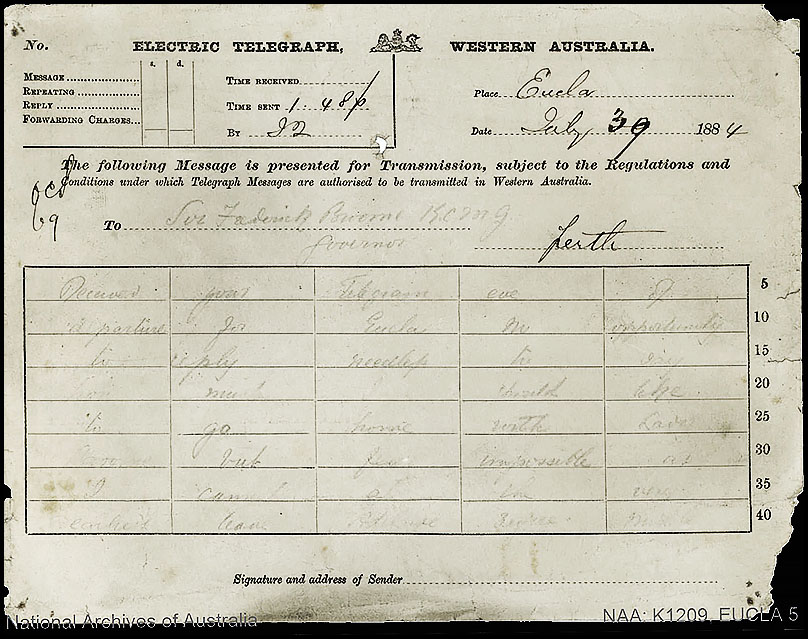 No. ELECTRIC TELEGRAPH, WESTERN AUSTRALIA.
s. d.
MESSAGE
REPEATING
REPLY
FORWARDING CHARGES
TIME RECEIVED
TIME SENT 1 48 p
BY
Place Eucla
Date July 1884
The following Message is presented for Transmission, subject to the Regulations and
Conditions under which Telegraph Messages are authorised to be transmitted in Western Australia.
69
To Sir Broome K.C.M.G.
Governor Perth
Received your Telegram eve of 5
departure for Eucla no opportunity 10
to reply needless to 15
much would like 20
to go home with Lady 25
but fear impossible as 30
I cannot at the very 35
earliest leave before 40
Signature and address of Sender
National Archives of Australia
NAA: K1209, EUCLA 5